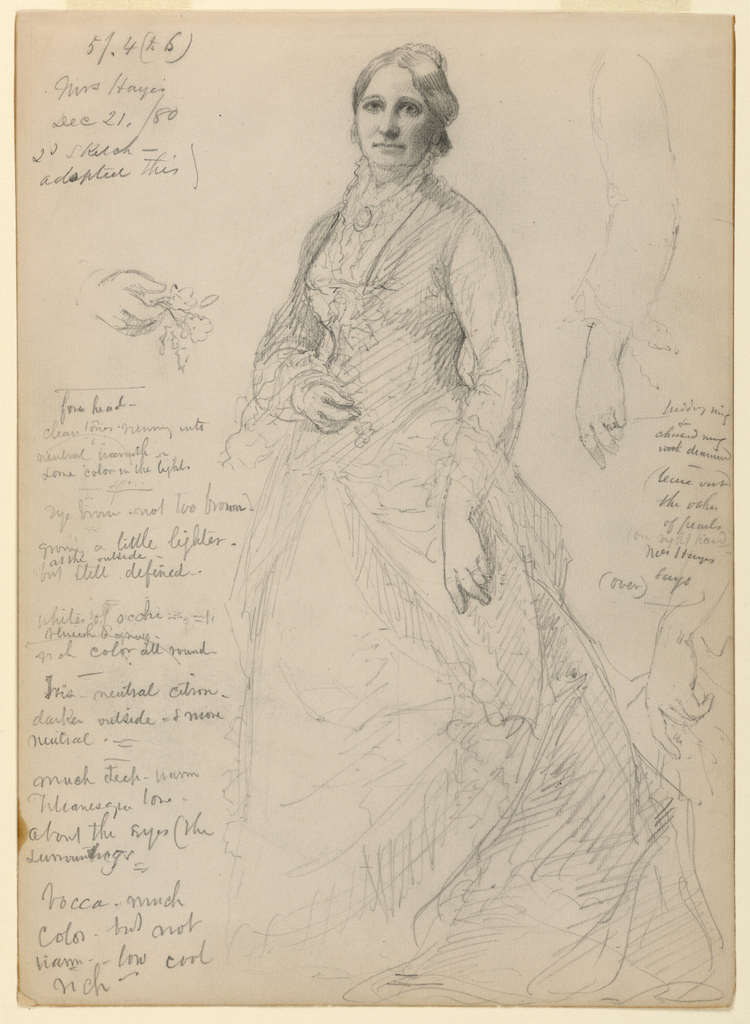 5/. 4 (& 6)
Mrs Hayes
Dec 21, /80
2d Sketch —
adopted this
fore head —
clean tones running into
neutral
some color in the lights
eye brow - not too brown -
grow a little lighter -
at the outside -
but still defined -
whites of occhi
rich color all round -
Iris - neutral citron -
darker outside - & more
neutral -
much deep - warm
Titianesque tone -
about the eyes (the
surroundings
bocca - much
color - but not
warm - low cool
rich
wedding ring
&
chased ring
with diamond
(leave out
the other
of pearls
on right hand
Mrs Hayes
says
(over)